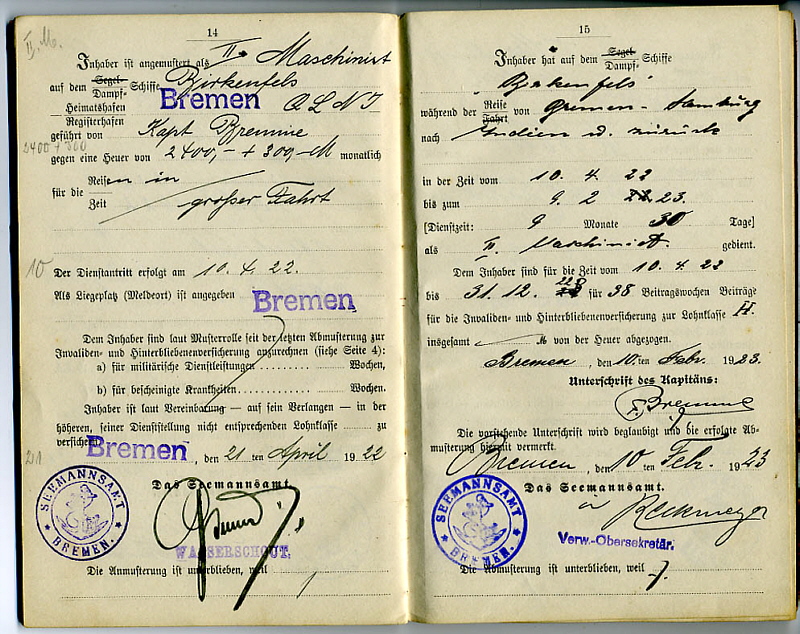 14
II. M.
Inhaber ist angemustert als II. Maschinist
auf dem Segel- Dampf- Schiffe Birkenfels
Heimatshafen Registerhafen Bremen QLNJ
geführt von Kapt Bremme
2400 + 300
gegen eine Heuer von 2400,- + 300,-M monatlich
für die Reisen in Zeit großer Fahrt
10 Der Dienstantritt erfolgt am 10. 4. 22.
Als Liegeplatz (Meldeort) ist angegeben Bremen
Dem Inhaber sind laut Musterrolle seit der letzten Abmusterung zur
Invaliden- und Hinterbliebenenversicherung anzurechnen (siehe Seite 4):
a) für militärische Dienstleistungen .......... Wochen,
b) für bescheinigte Krankheiten .......... Wochen.
Inhaber ist laut Vereinbarung — auf sein Verlangen — in der
höheren, seiner Dienststellung nicht entsprechenden Lohnklasse ...... zu
versichern.
Bremen, den 21 ten April 1922
Das Seemannsamt.
SEEMANNSAMT
BREMEN.
WASSERSCHOUT.
Die Anmusterung ist unterblieben, weil
15
Inhaber hat auf dem Segel- Dampf- Schiffe
"Birkenfels"
während der Reise Fahrt von Bremen - Hamburg
nach Indien u. zurück
in der Zeit vom 10. 4. 22
bis zum 9. 2 22 23.
[Dienstzeit: 9 Monate 30 Tage]
als II. Maschinist gedient.
Dem Inhaber sind für die Zeit vom 10. 4. 22
bis 31. 12. für 38 Beitragswochen Beiträge
für die Invaliden- und Hinterbliebenenversicherung zur Lohnklasse H
insgesamt M von der Heuer abgezogen.
Bremen, den 10. ten Febr. 1923.
Unterschrift des Kapitäns:
F. Bremme
Die vorstehende Unterschrift wird beglaubigt und die erfolgte Ab-
musterung hiermit vermerkt.
Bremen, den 10 ten Febr. 1923
Das Seemannsamt.
SEEMANNSAMT
BREMEN.
Verw.-Obersekretär.
Die Abmusterung ist unterblieben, weil